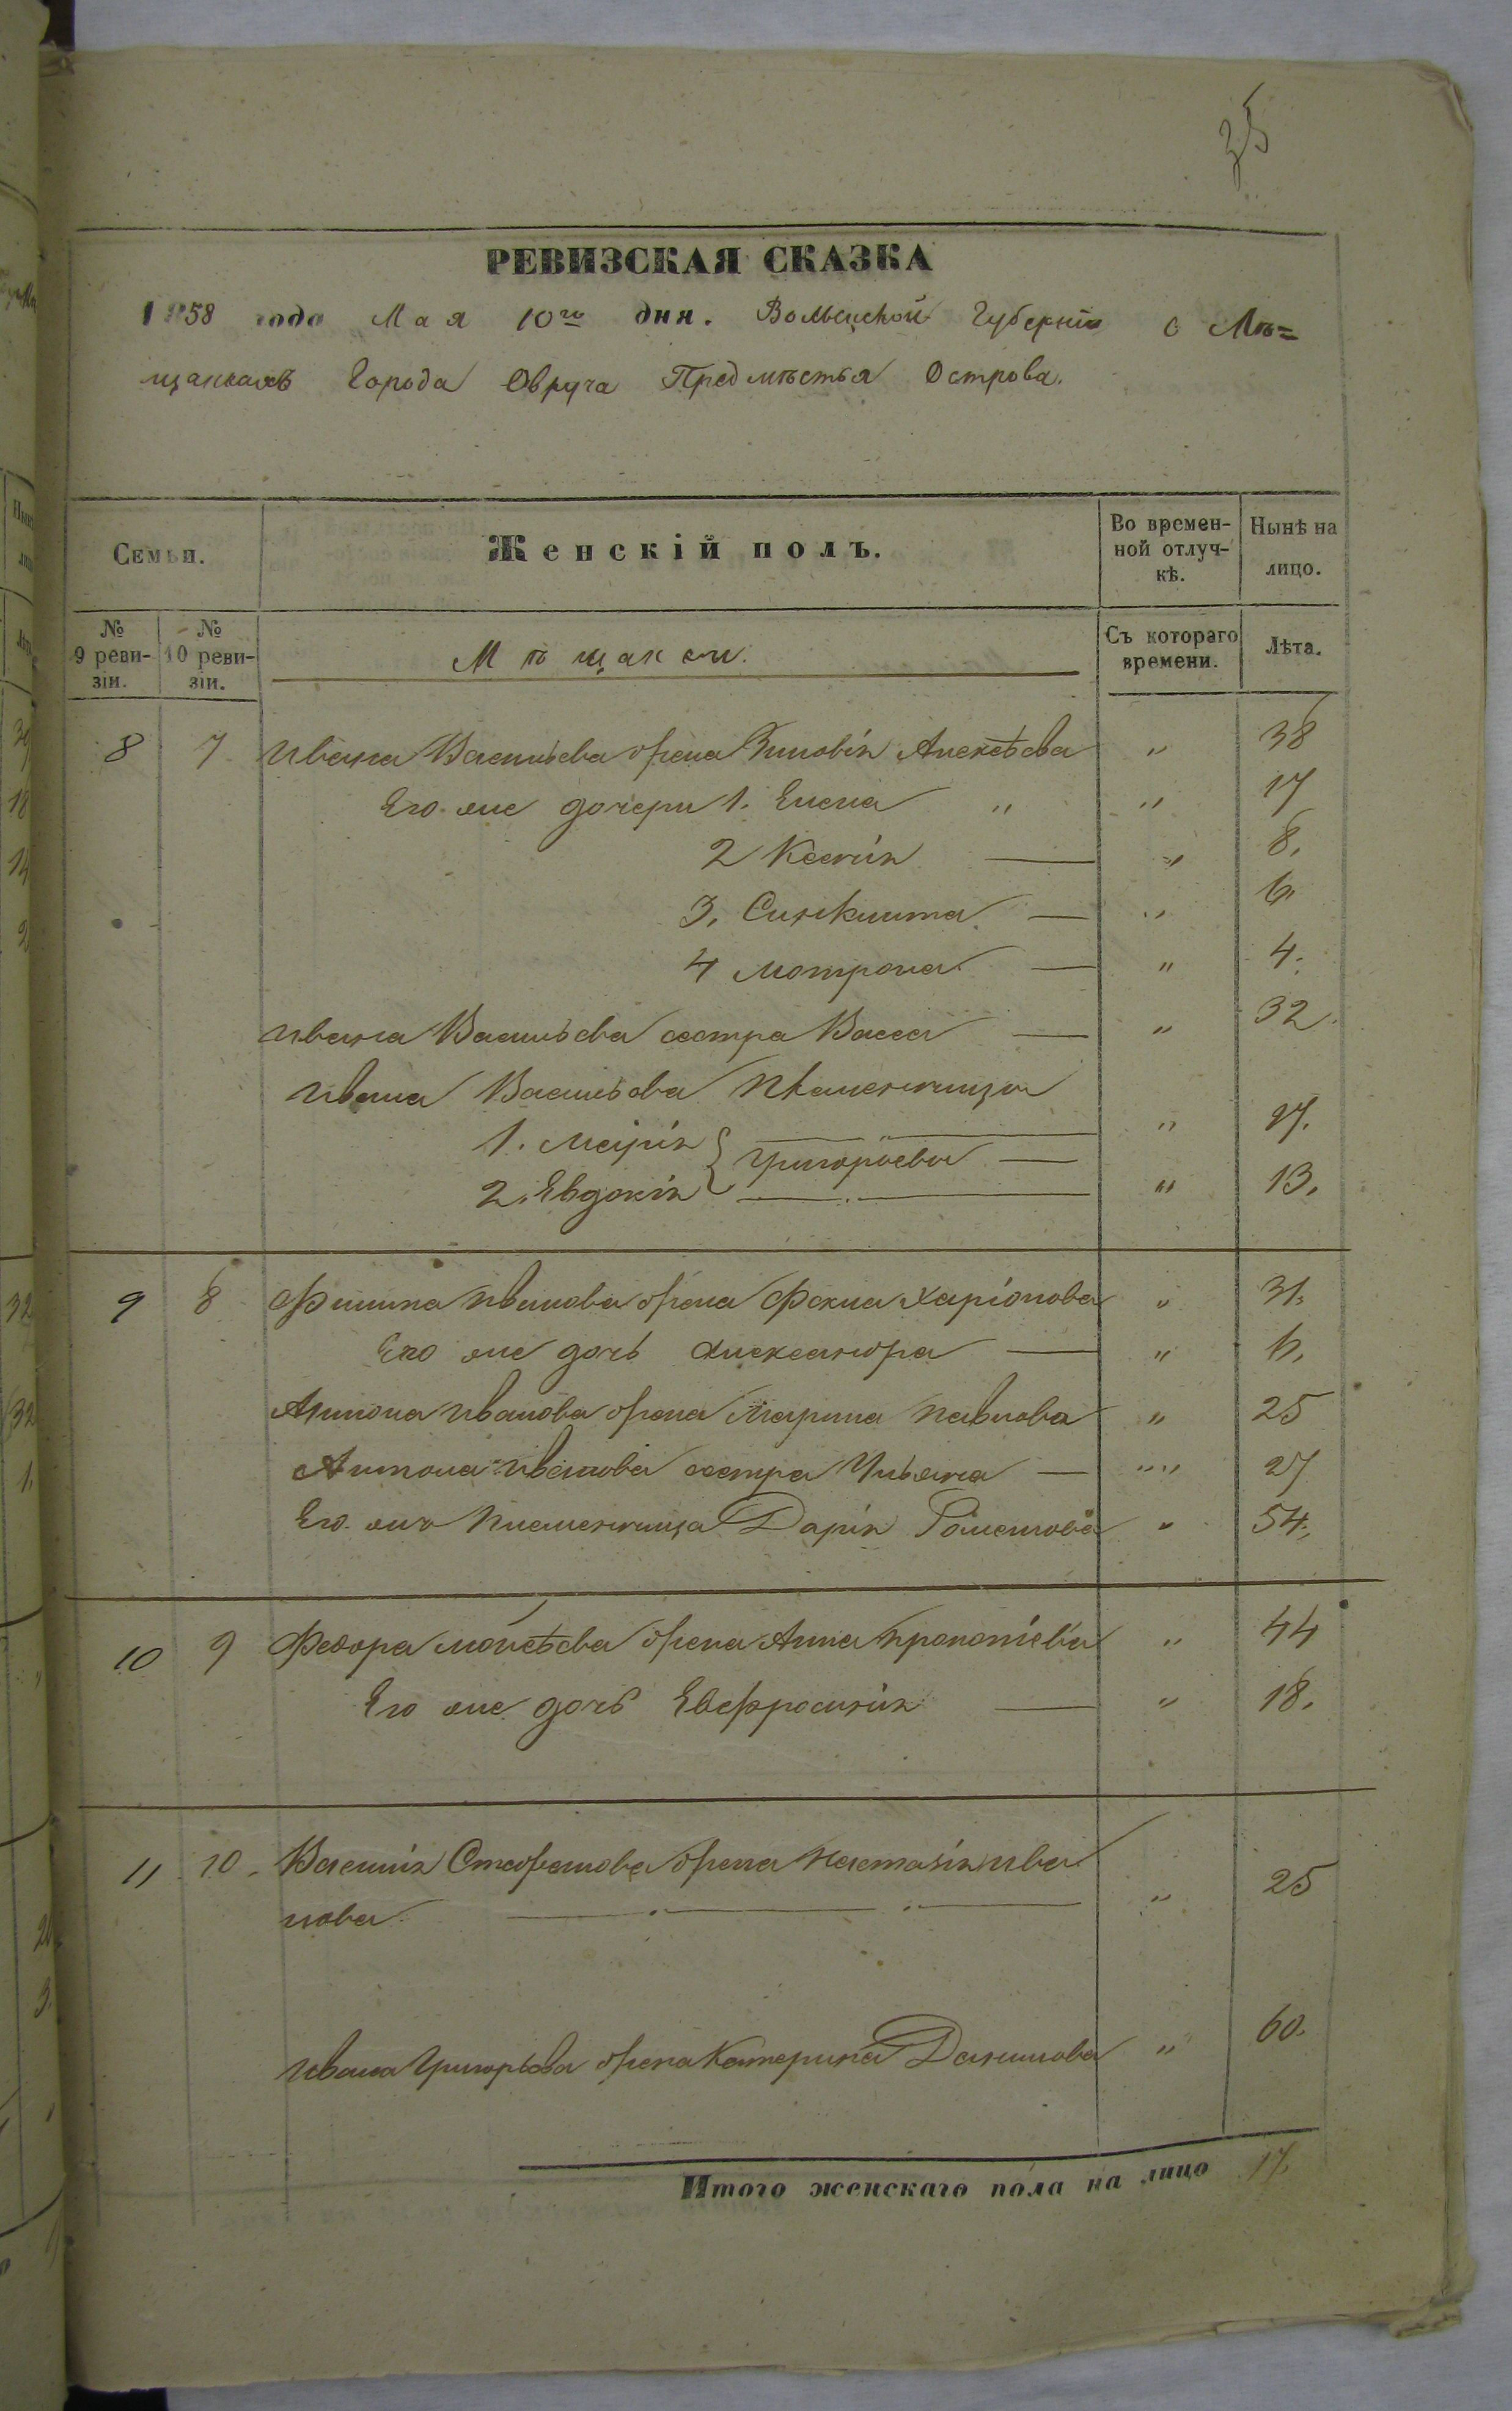 35
РЕВИЗСКАЯ СКАЗКА
1858 года Мая 10го дня. Волынской Губерніи о Мѣ=
щанкахъ Города Овруча Предмѣстья Острова.
Семьи. Женскій полъ. Во времен-ной отлуч-кѣ. Нынѣ на лицо.
№ 9 реви-зіи. № 10 реви-зіи. Мѣщанки. Съ котораго времени. Лѣта.
8 7 Ивана Васильева жена Зиновія Алексѣева " 38
Его же дочери 1. Елена " " 17
2 Ксенія — " 8.
3. Синклита — " 6.
4 Мотрона — " 4.
Ивана Васильева сестра Васса — " 32.
Ивана Васильева племянницы
1. Марія " 27.
Григорьевы —
2. Евдокія " 13.
9 8 Филипа Иванова жена Фокла Харіонова " 31.
Его же дочь Александра — " 6.
Антона Иванова жена Марина Павлова " 25
Антона Иванова сестра Ульяна — " 27
Его же племянница Дарія Романова " 54.
10 9 Федора Моисѣева жена Анна Прокопіева " 44
Его же дочь Евфросинія — " 18.
11 10. Василія Стефанова жена Настасія Ива
нова — " 25
Ивана Григорьева жена Катерина Данилова " 60.
Итого женскаго пола на лицо 17.